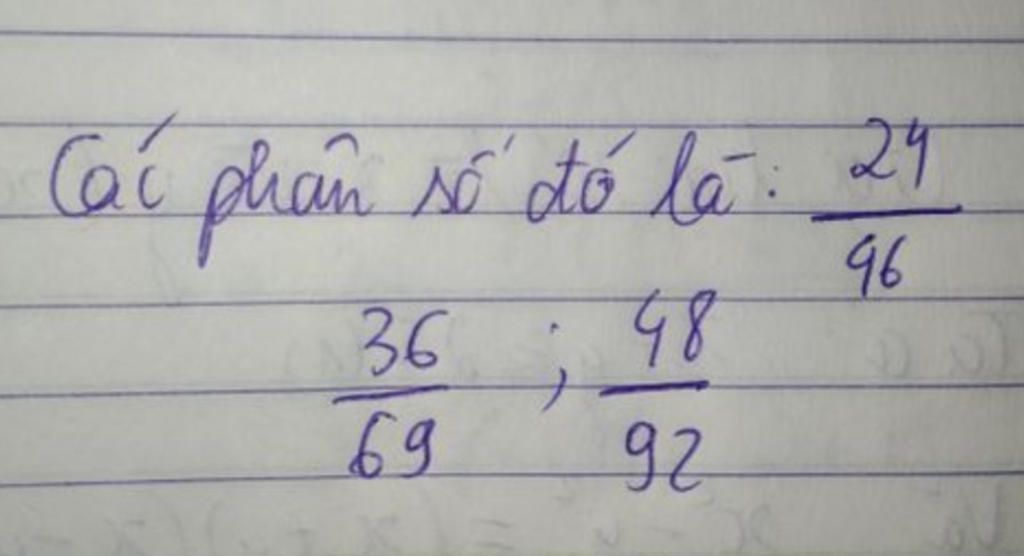 Các phân số đó là: 24/46
36/69 ; 48/92